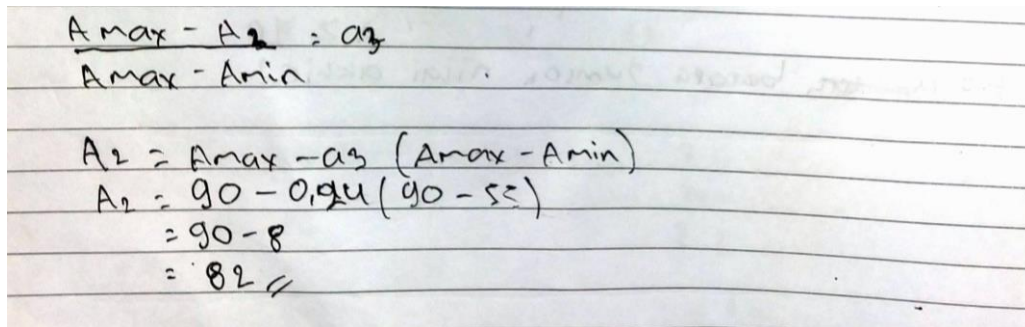 Amax - A2 = a3
Amax - Amin
A2 = Amax - a3 (Amax - Amin)
A2 = 90 - 0,24 (90 - 55)
= 90 - 8
= 82 //